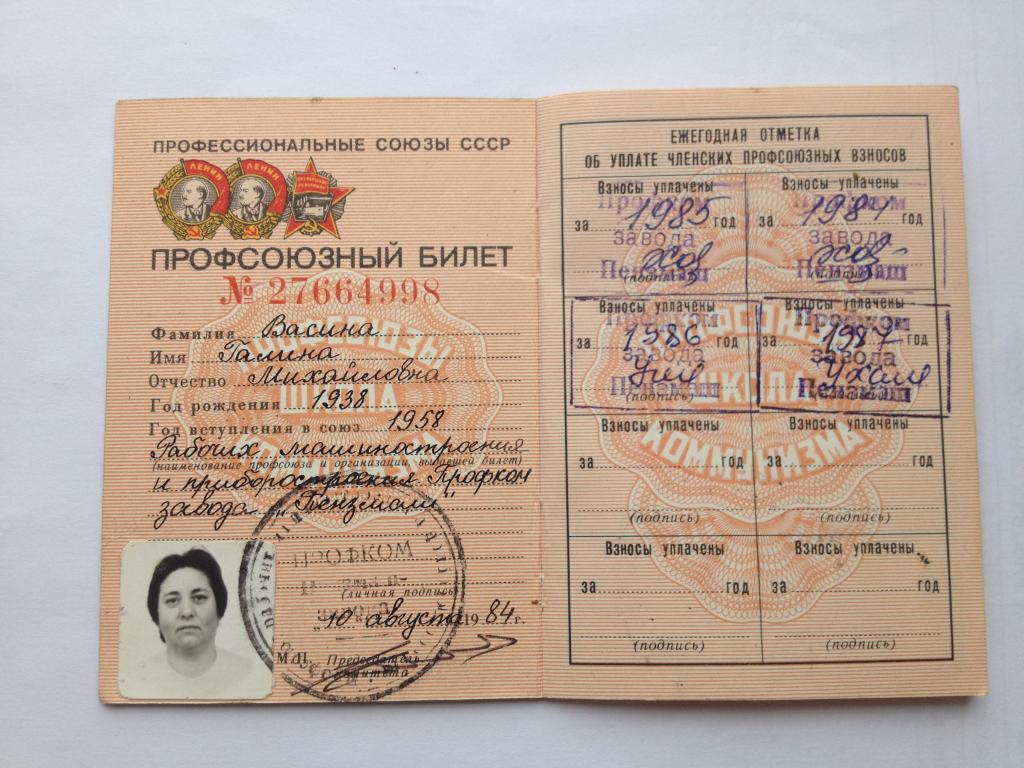 ПРОФЕССИОНАЛЬНЫЕ СОЮЗЫ СССР
ЛЕНИН ЛЕНИН
ПРОФСОЮЗНЫЙ БИЛЕТ
№ 27664998
Фамилия Васина
Имя Галина
Отчество Михайловна
Год рождения 1938
Год вступления в союз 1958
Рабочих машиностроения
(наименование профсоюза и организации, выдавшей билет)
и приборостроения Профком
завода „Пензмаш"
ПРОФКОМ
(личная подпись)
"10" августа 1984 г.
М.П. Председатель
комитета
ПРОФСОЮЗЫ
ШКОЛА
КОММУНИЗМА
ЕЖЕГОДНАЯ ОТМЕТКА
ОБ УПЛАТЕ ЧЛЕНСКИХ ПРОФСОЮЗНЫХ ВЗНОСОВ
Взносы уплачены Взносы уплачены
Профком Профком
за 1985 год за 1984 год
завода завода
Пензмаш Пензмаш
(подпись) (подпись)
Взносы уплачены Взносы уплачены
Профком Профком
за 1986 год за 1987 год
завода завода
Пензмаш Пензмаш
(подпись) (подпись)
Взносы уплачены Взносы уплачены
за год за год
(подпись) (подпись)
Взносы уплачены Взносы уплачены
за год за год
(подпись) (подпись)
ПРОФСОЮЗЫ
ШКОЛА
КОММУНИЗМА